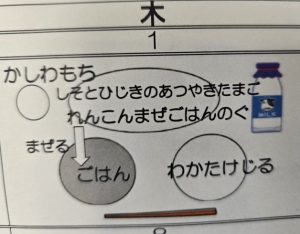 木
1
かしわもち
しそとひじきのあつやきたまご
れんこんまぜごはんのぐ
MILK
まぜる
ごはん
わかたけじる